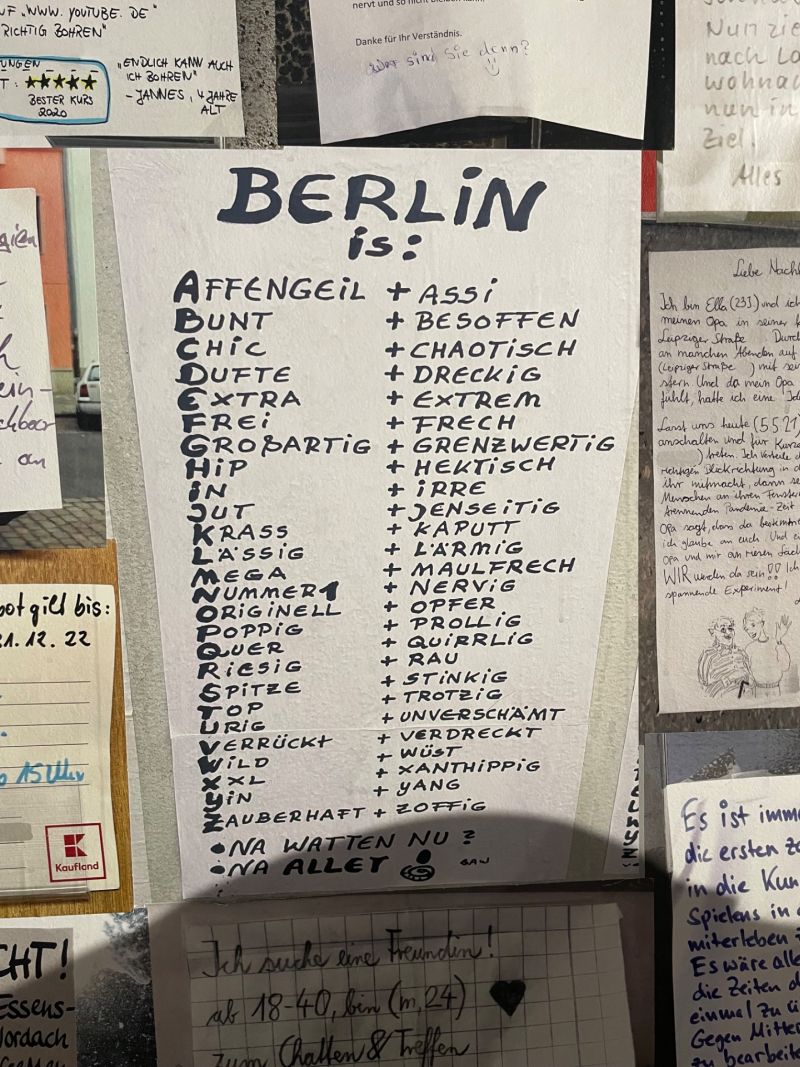 "WWW. YOUTUBE. DE"
RICHTIG BOHREN"
BESTER KURS
2020
"ENDLICH KANN AUCH
ICH BOHREN"
- JANNES, 4 JAHRE
ALT
nervt und so nicht
Danke für Ihr Verständnis.
sind Sie denn?
Nun
nach
nun in
Ziel.
Alles
BERLiN
is:
AFFENGEiL + ASSi
BUNT + BESOFFEN
CHiC + CHAOTiSCH
DUFTE + DRECKiG
EXTRA + EXTREM
FREi + FRECH
GROßARTiG + GRENZWERTiG
HiP + HEKTiSCH
iN + iRRE
JUT + JENSEiTiG
KRASS + KAPUTT
LÄSSiG + LÄRMiG
MEGA + MAULFRECH
NUMMER1 + NERViG
ORiGiNELL + OPFER
POPPiG + PROLLiG
QUER + QUiRRLiG
RiESiG + RAU
SPiTZE + STiNKiG
TOP + TROTZiG
URiG + UNVERSCHÄMT
VERRÜCKt + VERDRECKT
WiLD + WÜST
XXL + XANTHiPPiG
YiN + YANG
ZAUBERHAFT + ZOFFiG
• NA WATTEN NU ?
• NA ALLET
Liebe
Ich bin Ella (23J) und ich
meinen Opa in seiner
Leipziger Straße Durch
an manchen Abenden auf
(Leipziger Straße ) mit
stern Und da mein Opa
fühlt, hatte ich eine
Lasst uns heute (5 5 21)
anschalten und für
) treten. Ich verteile
richtigen Blickrichtung in
ihr mitmacht, dann
Menschen an ihren
trennenden Pandemie-Zeit
Opa sagt, dass da bestimmt
ich glaube an euch Und
Opa und mir an
WIR werden da sein!! Ich
spannende Experiment!
gilt bis:
12. 22
15 Uhr
Kaufland
an
Es ist
die ersten
in die
Spielens in
miterleben
Es wäre
die Zeiten
einmal zu
Gegen
zu
CHT!
ESSENS-
Ich suche eine Freundin!
ab 18-40, bin (m, 24) ♥
zum Chatten & Treffen